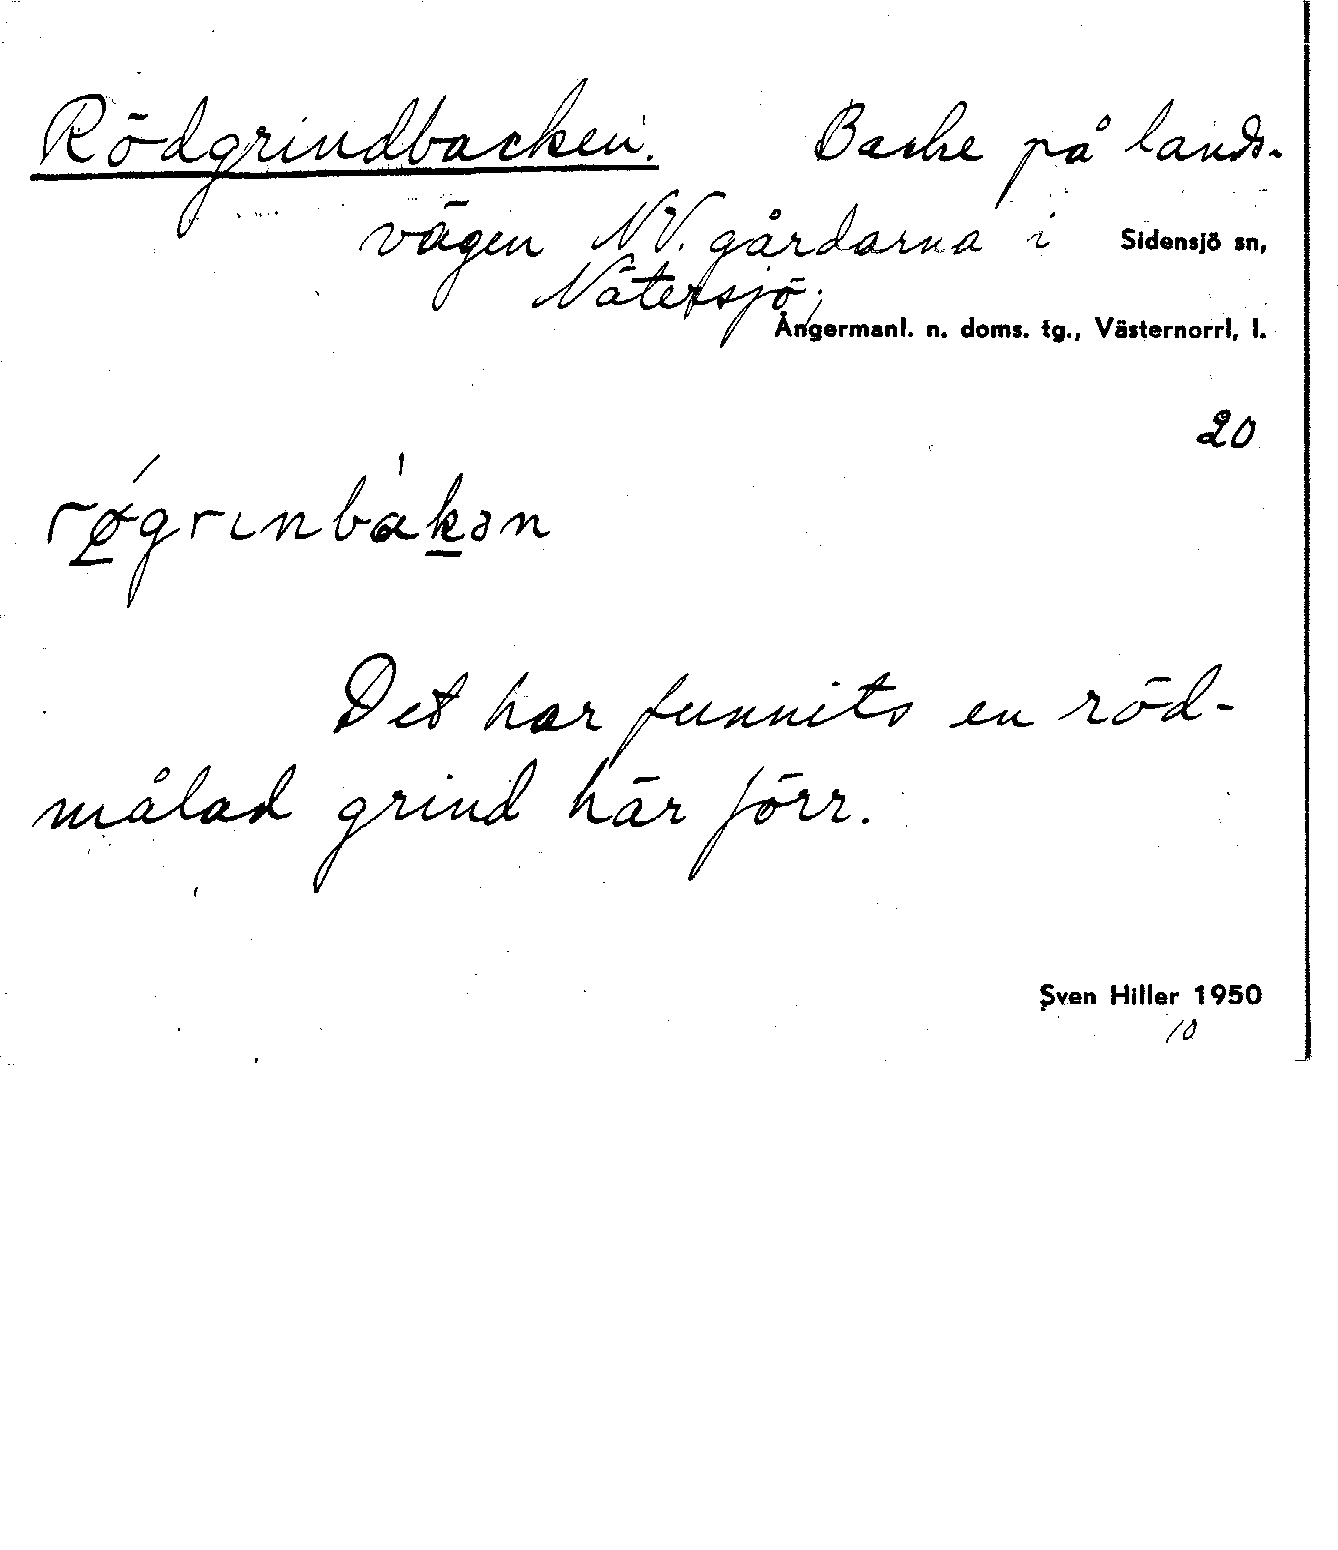 Rödgrindbacken. Backe på lands-
vägen NV. gårdarna i Sidensjö sn,
Nätersjö;
Ångermanl. n. doms. tg., Västernorrl. l.
20
røgrinbakən
Det har funnits en röd-
målad grind här förr.
Sven Hiller 1950
10